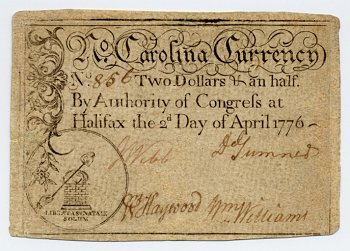 No. Carolina Currency
No. 856 Two Dollars & an half.
By Authority of Congreſs at
Halifax the 2d Day of April 1776
J Webb
Dd Sumner
Wm Haywood
Wm Williams
LIBERTAS NATALE
SOLUM